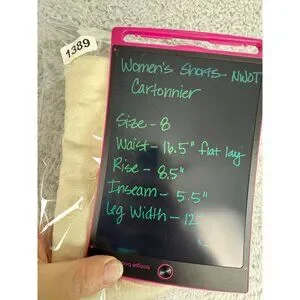 1389
Women's Shorts - NWOT
Cartonnier
Size - 8
Waist - 16.5" flat lay
Rise - 8.5"
Inseam - 5.5"
Leg Width - 12"
boogie bo